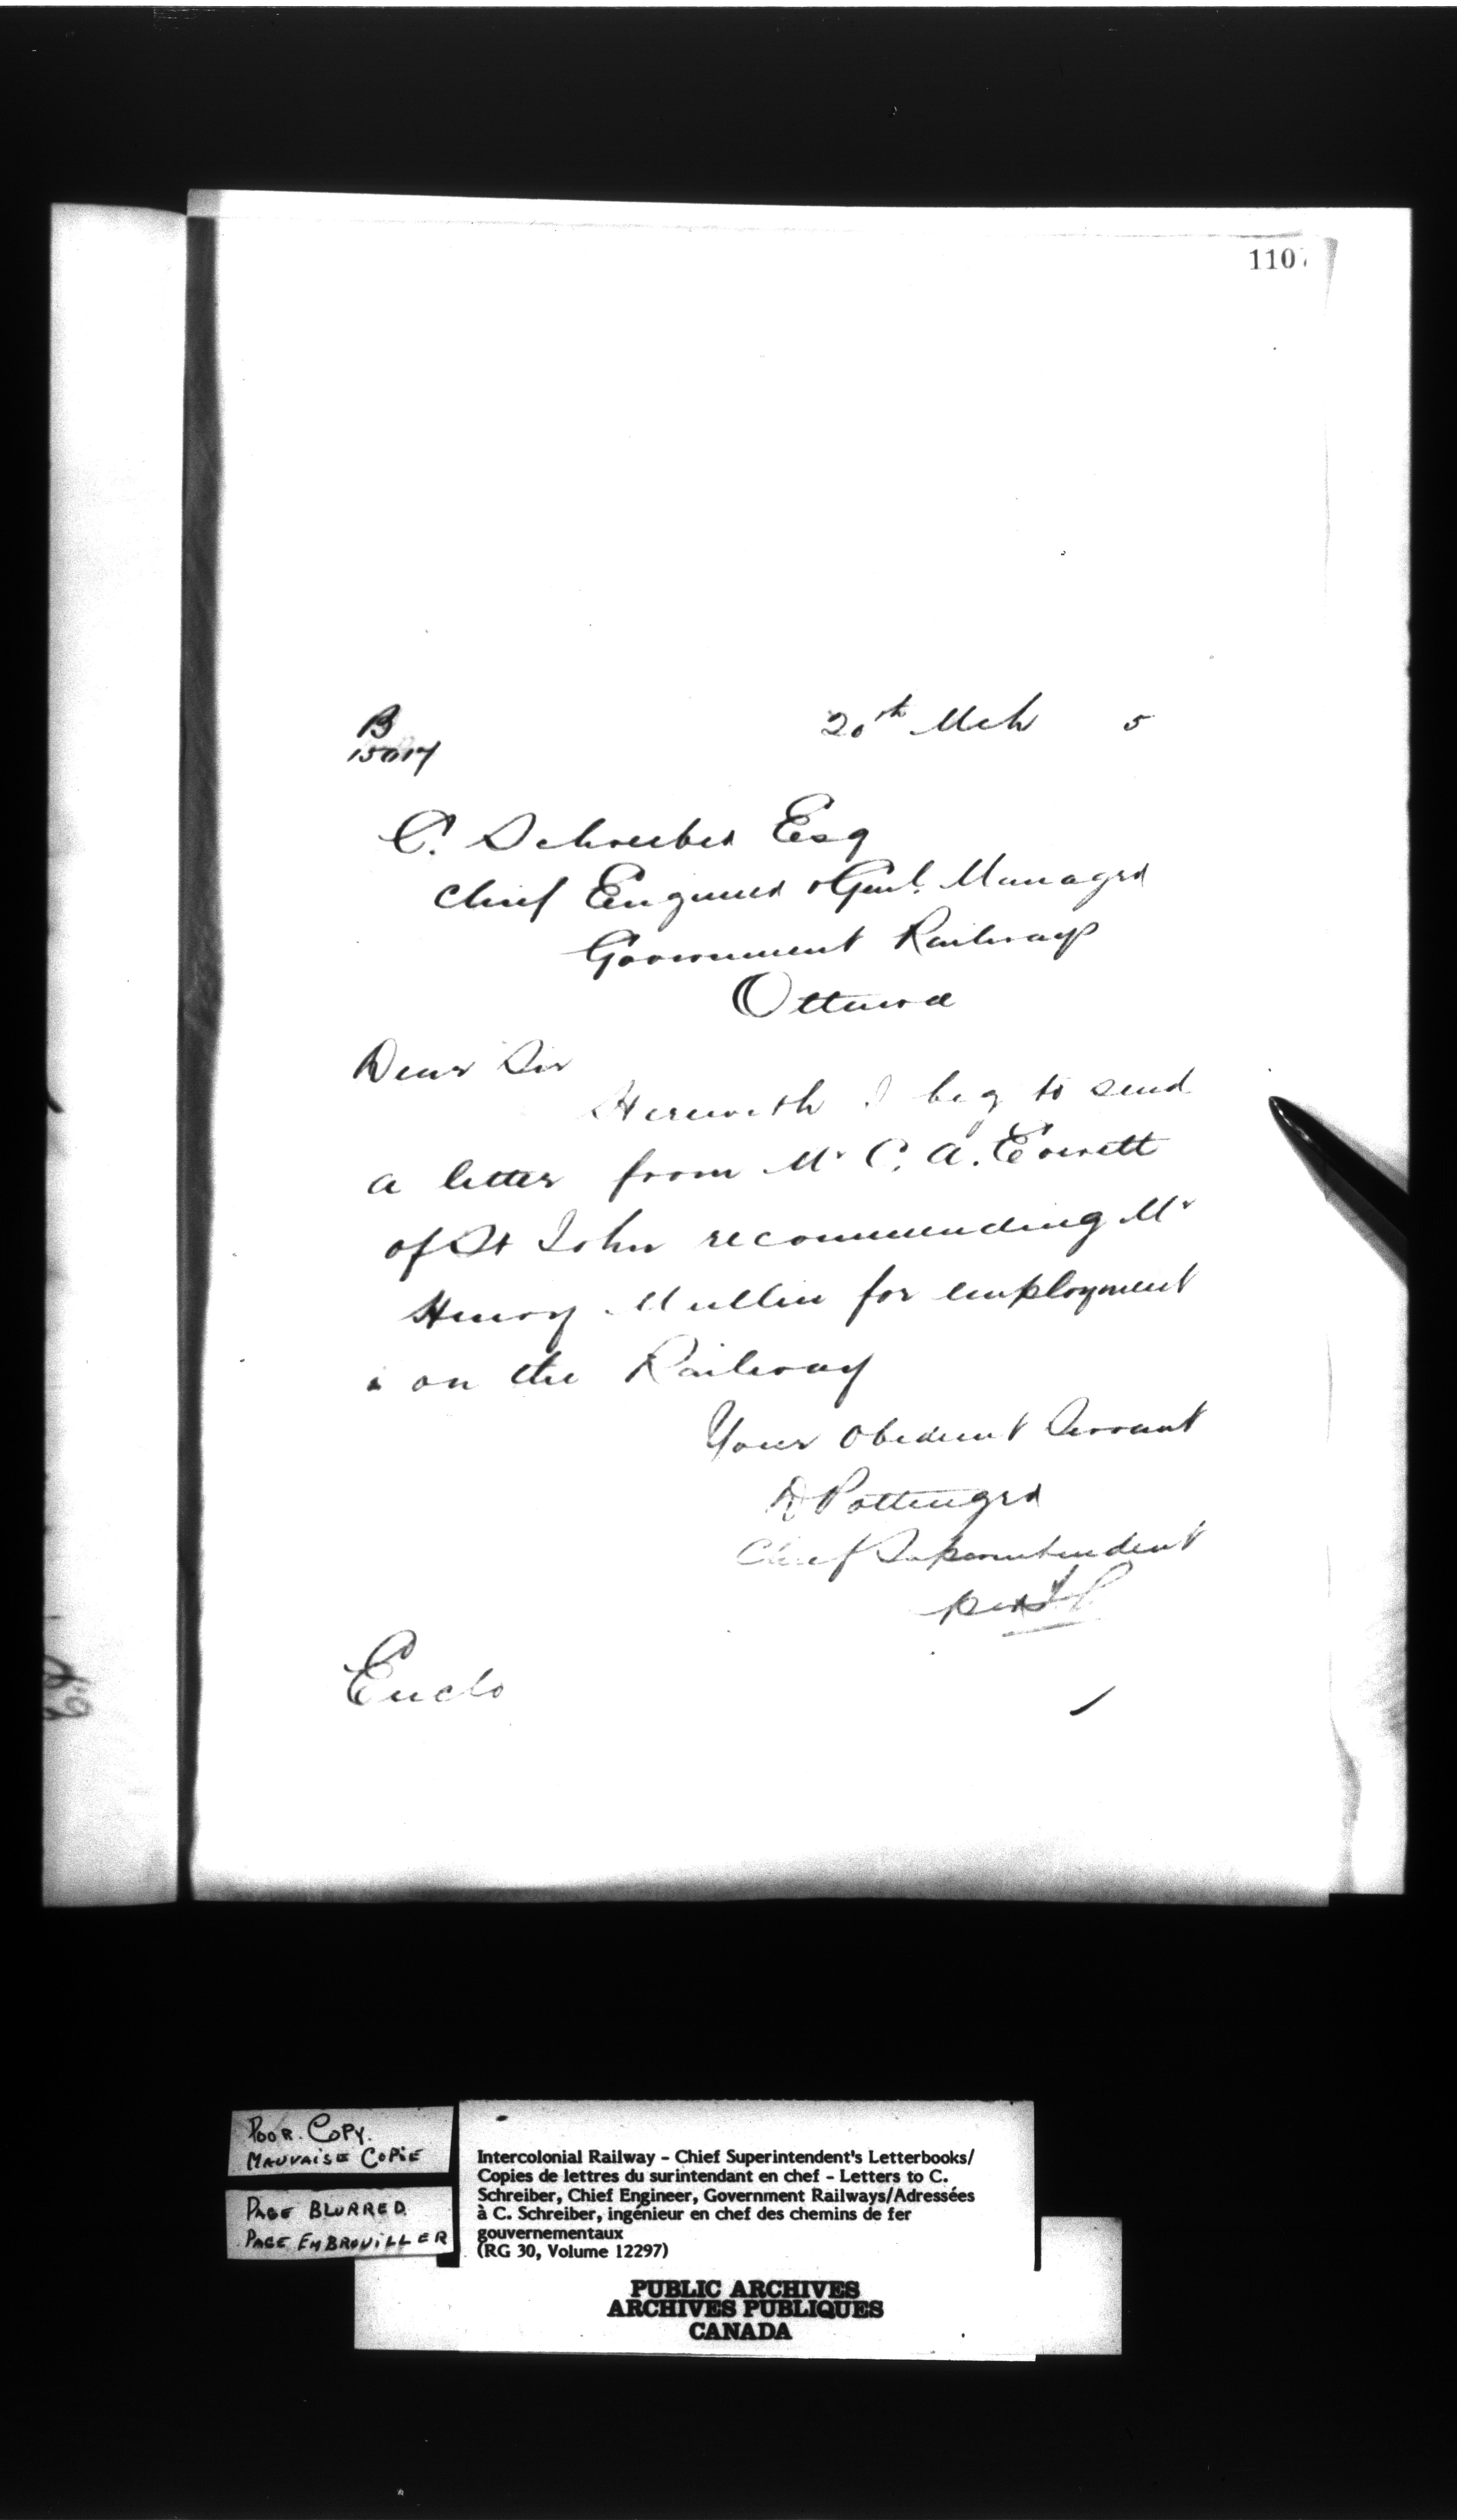 110
B
15017
20th Mch 5
C. Schreiber Esq
Chief Engineer & Genl. Manager
Government Railways
Ottawa
Dear Sir
Herewith I beg to send
a letter from Mr C. A. Everett
of St John recommending Mr
Henry Mullin for employment
on the Railway
Your Obedient Servant
D Pottinger
Chief Superintendent
per
Enclo
POOR. COPY.
MAUVAISE COPIE
PAGE BLURRED.
PAGE EMBROUILLER
Intercolonial Railway - Chief Superintendent's Letterbooks/
Copies de lettres du surintendant en chef - Letters to C.
Schreiber, Chief Engineer, Government Railways/Adressées
à C. Schreiber, ingénieur en chef des chemins de fer
gouvernementaux
(RG 30, Volume 12297)
PUBLIC ARCHIVES
ARCHIVES PUBLIQUES
CANADA